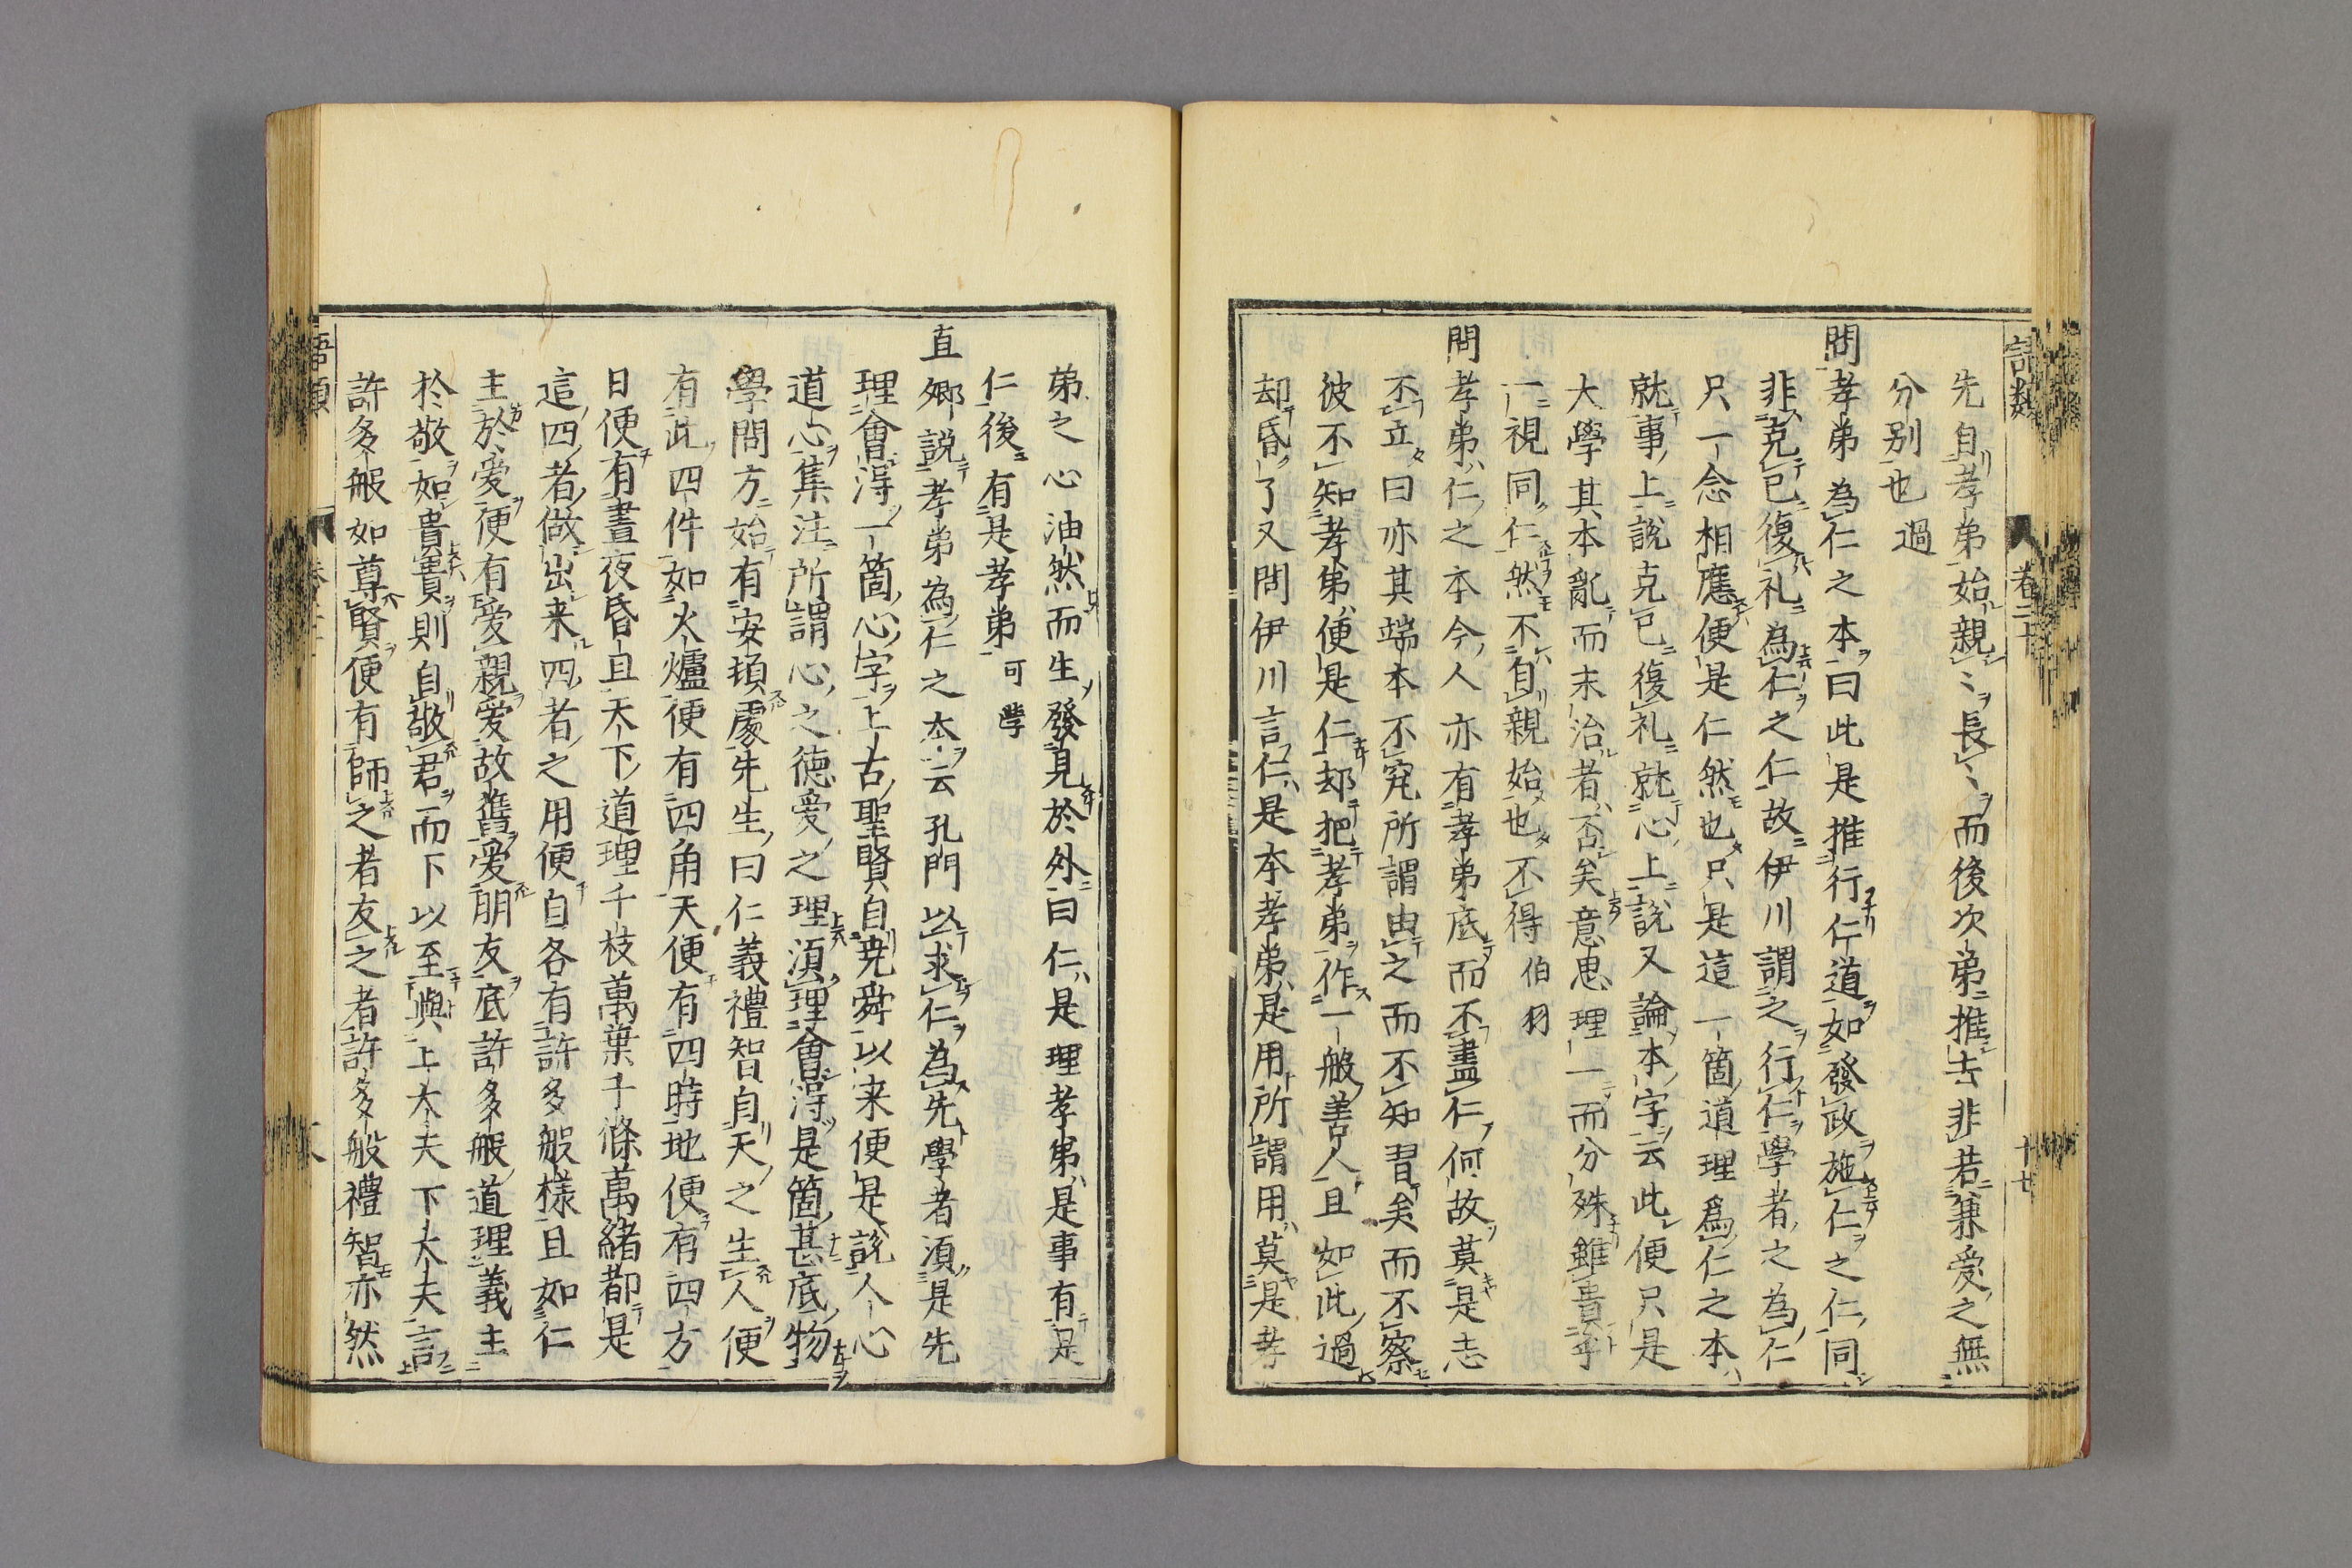 先自孝弟始親〻長〻而後次弟推去非若兼愛之無
分别也 過
問孝弟為仁之本曰此是推行仁道如發政施仁之仁同
非克己復礼為仁之仁故伊川謂之行仁學者之為仁
只一念相應便是仁然也只是這一箇道理爲仁之本
就事上説克己復礼就心上説又論本字云此便只是
大學其本亂而末治者否矣意思理一而分殊雖貴乎
一視同仁然不自親始也不得 伯羽
問孝弟仁之本今人亦有孝弟底而不盡仁何故莫是志
不立曰亦其端本不究所謂由之而不知習矣而不察
彼不知孝弟便是仁却把孝弟作一般善人且如此過
却昏了又問伊川言仁是本孝弟是用所謂用莫是孝
弟之心油然而生發見於外曰仁是理孝弟是事有是
仁後有是孝弟 可學
直卿説孝弟為仁之本云孔門以求仁為先學者湏是先
理會淂一箇心字上古聖賢自堯舜以来便是說人心
道心集注所謂心之德愛之理湏理會淂是箇甚底物
學問方始有安頓處先生曰仁義禮智自天之生人便
有此四件如火爐便有四角天便有四時地便有四方
日便有晝夜昏旦天下道理千枝萬葉千條萬緒都是
這四者做出来四者之用便自各有許多般樣且如仁
主於愛便有愛親愛故舊愛朋友底許多般道理義主
於敬如貴貴則自敬君而下以至與上大夫下大夫言
許多般如尊賢便有師之者友之者許多般禮智亦然